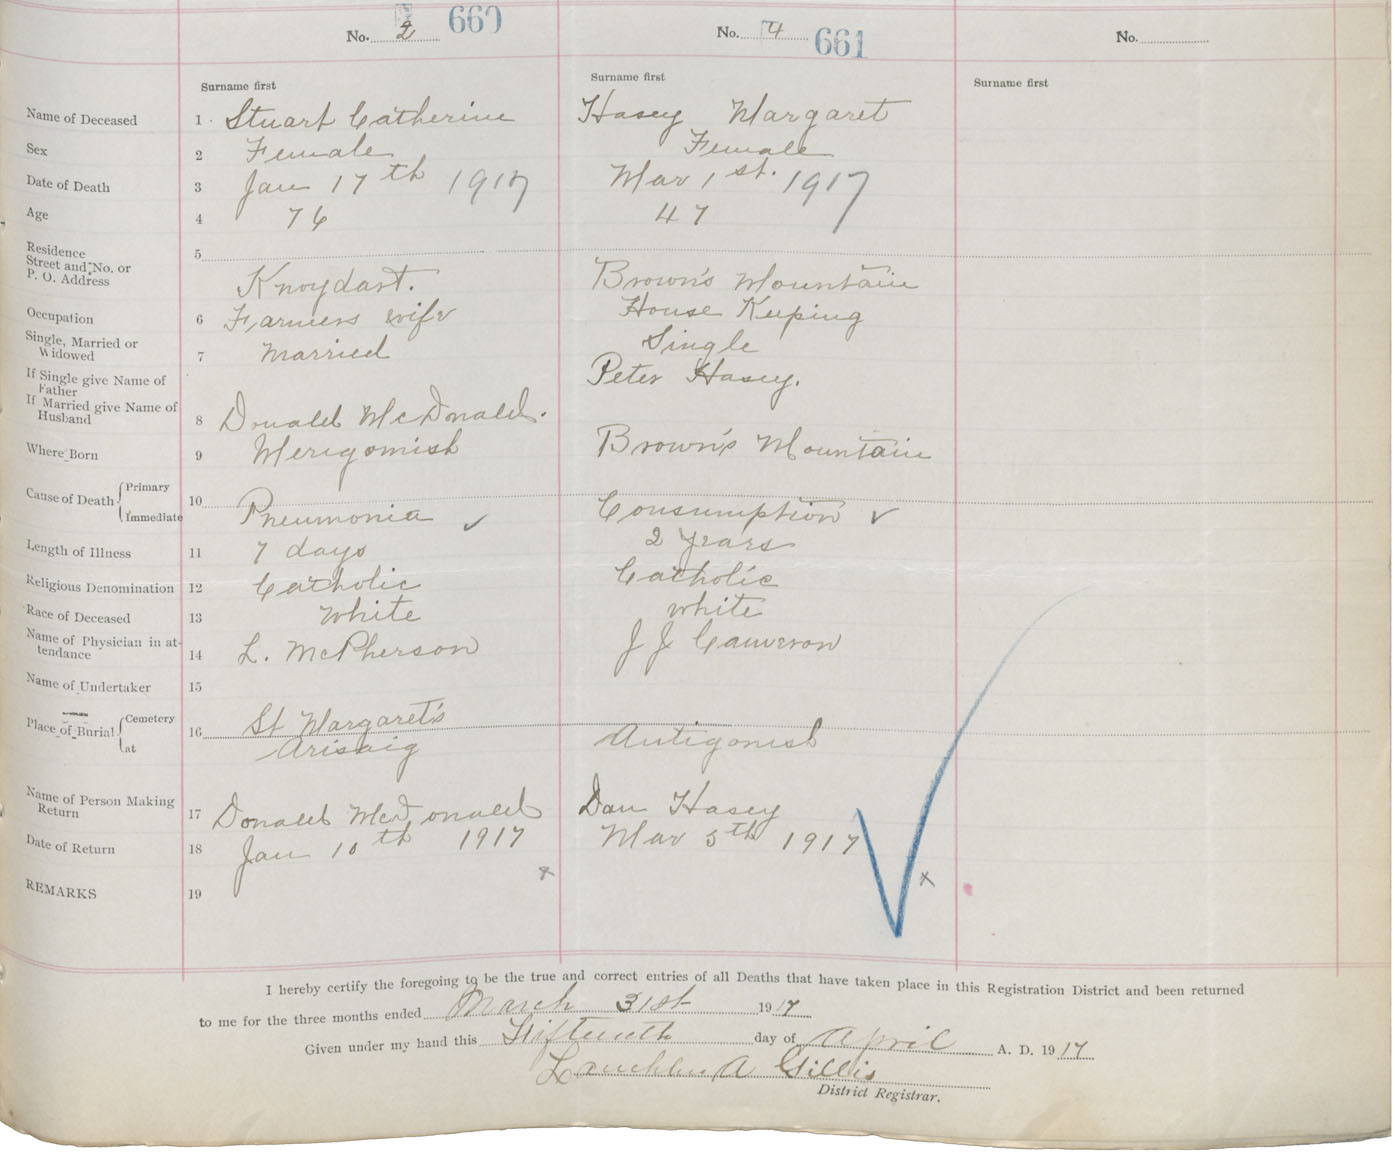 No. 2 660 No. 4 661 No.
Surname first Surname first Surname first
Name of Deceased 1 Stuart Catherine Hasey Margaret
Sex 2 Female Female
Date of Death 3 Jan 17th 1917 Mar 1st. 1917
Age 4 76 47
Residence 5
Street and No. or
P. O. Address Knoydart. Brown's Mountain
Occupation 6 Farmers wife House Keeping
Single, Married or
Widowed 7 Married Single
If Single give Name of
Father Peter Hasey.
If Married give Name of
Husband 8 Donald McDonald.
Where Born 9 Merigomish Brown's Mountain
Cause of Death Primary 10
Immediate Pneumonia ✓ Consumption ✓
Length of Illness 11 7 days 2 years
Religious Denomination 12 Catholic Catholic
Race of Deceased 13 White White
Name of Physician in at-
tendance 14 L. McPherson J J Cameron
Name of Undertaker 15
Place of Burial Cemetery 16 St Margaret's
at Arisaig Antigonish
Name of Person Making
Return 17 Donald McDonald Dan Hasey
Date of Return 18 Jan 10th 1917 Mar 5th 1917
REMARKS 19 x x
I hereby certify the foregoing to be the true and correct entries of all Deaths that have taken place in this Registration District and been returned
to me for the three months ended March 31st 1917
Given under my hand this Fifteenth day of April A. D. 1917
Lauchlin A Gillis
District Registrar.